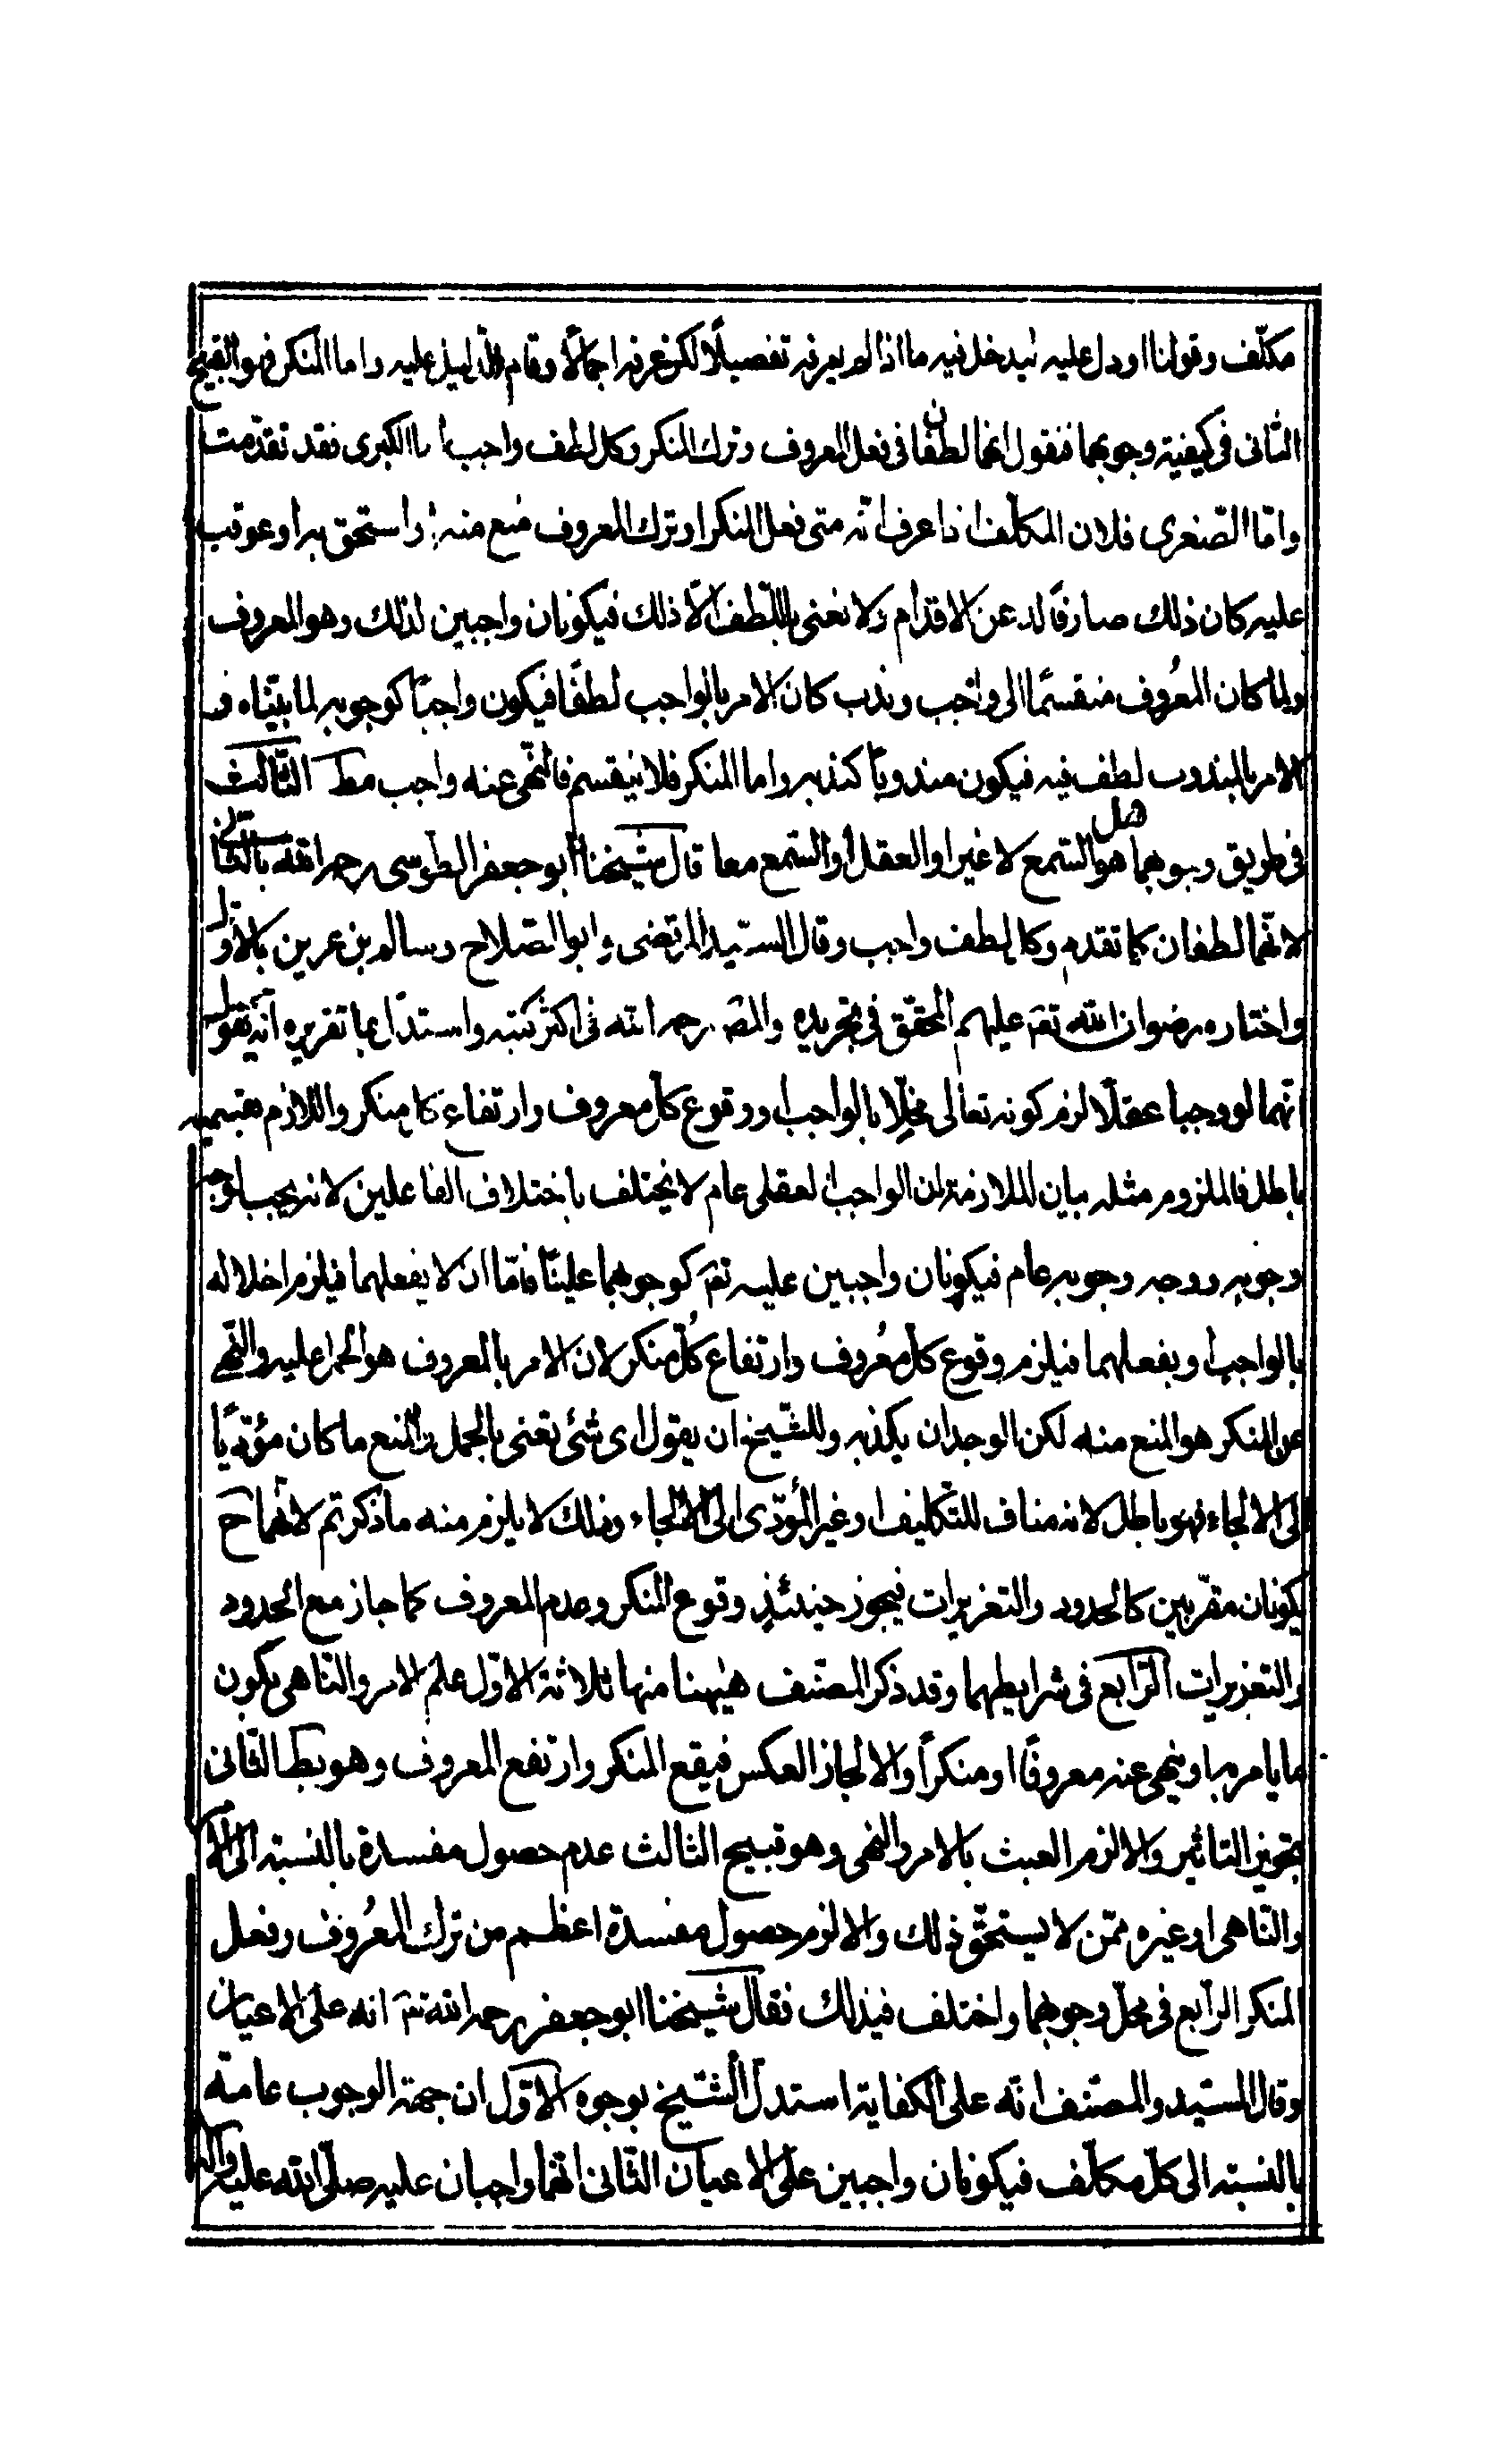 مكلّف وقولنا او دل عليه ليدخل فيه ما اذا لم يعرفه تفصيلًا لكن عرفه اجمالًا وقام الدّليل عليه واما المنكر فهو القبيح
الثانى فى كيفية وجوبهما فنقول انهما لطفان فى فعل المعروف وترك المنكر وكل لطف واجب اما الكبرى فقد تقدّمت
وامّا الصّغرى فلان المكلّف اذا عرف انّه متى فعل المنكر او ترك المعروف منع منه واستحق به او عوقب
عليه كان ذلك صارفًا له عن الاقدام ولا نعنى باللّطف الّا ذلك فيكونان واجبين لذلك وهو المعروف
ولما كان المعُروف منقسمًا الى واجب وندب كان الامر بالواجب لطفًا فيكون واجبًا كوجوبه لما بيّناه و
الامر بالمندوب لطف فيه فيكون مندوبًا كندبه واما المنكر فلا ينقسم فالنّهى عنه واجب مط الثّالث
فى طريق وجوبهما هل هو السّمع لا غير او العقل او السّمع معا قال شيخنا ابو جعفر الطّوسى رحمه الله بالثّانى
لانّهما لطفان كما تقدم وكل لطف واجب وقال السيّد المرتضى وابو الصّلاح وسالم بن عزيز بالاوّل
واختاره رضوان الله تعَ عليهم المحقق فى تجريده والمصَ رحمه الله فى اكثر كتبه واستدلّ بما تقريره ان نقول
انّهما لو وجبا عقلًا لزم كونه تعالى مخلّا بالواجب او وقوع كلّ معروف وارتفاع كل منكر واللازم بقسميه
باطل فالملزوم مثله بيان الملازمة ان الواجب العقلى عام لا يختلف باختلاف الفاعلين لانه يجب لوجه
وجوبه ووجه وجوبه عام فيكونان واجبين عليه تعَ كوجوبهما علينا فامّا ان لا يفعلهما فيلزم اخلاله
بالواجب او يفعلهما فيلزم وقوع كلّ معُروف وارتفاع كُلّ منكر لان الامر بالمعروف هو الحمل عليه والنّهى
عن المنكر هو المنع منه لكن الوجدان يكذبه وللشّيخ ان يقول اى شئ تعنى بالحمل والمنع ما كان مؤدّيًا
الى الالجاء فهو باطل لانه مناف للتّكليف او غير المُؤدّى الى الالجاء وذلك لا يلزم منه ما ذكرتم لانهما ح
يكونان مقرّبين كالحدود والتعزيرات فيجوز حينئذٍ وقوع المنكر وعدم المعروف كما جاز مع الحدود
والتعزيرات الرّابع فى شرايطهما وقد ذكر المصنّف هيٰهنا منها ثلاثة الاوّل علم الامر والنّاهى بكون
ما يامر به او ينهى عنه معروفًا او منكراً والا لجاز العكس فيقع المنكر وارتفع المعروف وهو بط الثّانى
تجويز التاثير والا لزم العبث بالامر والنهى وهو قبيح الثالث عدم حصول مفسدة بالنّسبة الى الآمر
والنّاهى او غيره ممّن لا يستحقّ ذلك والا لزم حصول مفسدة اعظم من ترك المعُروف وفعل
المنكر الرّابع فى محلّ وجوبهما واختلف فيذلك فقال شيخنا ابو جعفر رحمه الله تعَ انه على الاعيان
وقال السّيد والمصنّف انّه على الكفاية استدلّ الشّيخ بوجوه الاوّل ان جهة الوجوب عامة
بالنسبة الى كلّ مكلّف فيكونان واجبين على الاعيان الثّانى انهما واجبان عليه صلّى الله عليه واله